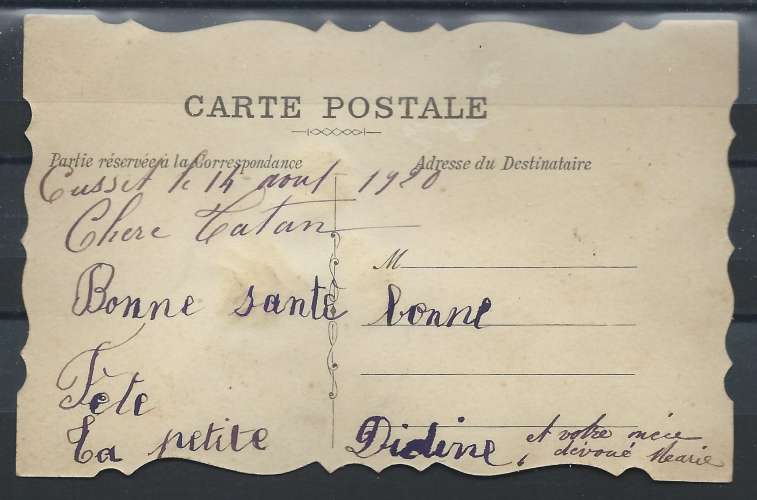 CARTE POSTALE
Partie réservée à la Correspondance
Adresse du Destinataire
Cusset le 14 aout 1920
Chere Tatan
M
Bonne santé bonne
Fête
Ta petite Didine et votre nièce
dévoué Marie